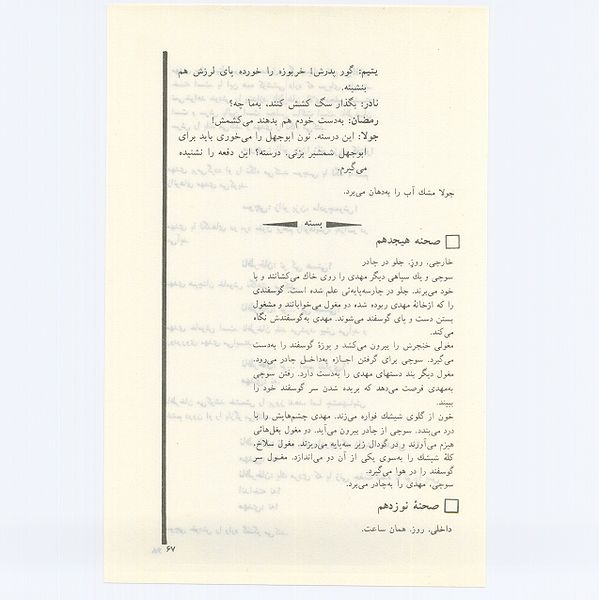 یتیم: گور پدرش! خربوزه را خورده پای لرزش هم
بنشینه.
نادر: بگذار سگ کشش کنند، به‌ما چه؟
رمضان: به‌دست خودم هم بدهند می‌کشمش!
جولا: این درسته. نون ابوجهل را می‌خوری باید برای
ابوجهل شمشیر بزنی. درسته؟ این دفعه را نشنیده
می‌گیرم.
جولا مشك آب را به‌دهان می‌برد.
بسته
صحنه هیجدهم
خارجی. روز. جلو در چادر
سوچی و یك سپاهی دیگر مهدی را روی خاك می‌کشانند و با
خود می‌برند. جلو در چارسه‌پایه‌ئی علم شده است. گوسفندی
را که ازخانهٔ مهدی ربوده شده دو مغول می‌خوابانند و مشغول
بستن دست و پای گوسفند می‌شوند. مهدی به‌گوسفندش نگاه
می‌کند.
مغولی خنجرش را بیرون می‌کشد و پوزهٔ گوسفند را به‌دست
می‌گیرد. سوچی برای گرفتن اجازه به‌داخل چادر می‌رود.
مغول دیگر بند دستهای مهدی را به‌دست دارد. رفتن سوچی
به‌مهدی فرصت می‌دهد که بریده شدن سر گوسفند خود را
ببیند.
خون از گلوی شیشك فواره می‌زند. مهدی چشم‌هایش را با
درد می‌بندد. سوچی از چادر بیرون می‌آید. دو مغول بغل‌هائی
هیزم می‌آورند و در گودال زیر سه‌پایه می‌ریزند. مغول سلاخ،
کلهٔ شیشك را به‌سوی یکی از آن دو می‌اندازد. مغول سر
گوسفند را در هوا می‌گیرد.
سوچی، مهدی را به‌چادر می‌برد.
صحنهٔ نوزدهم
داخلی. روز. همان ساعت.
۶۷